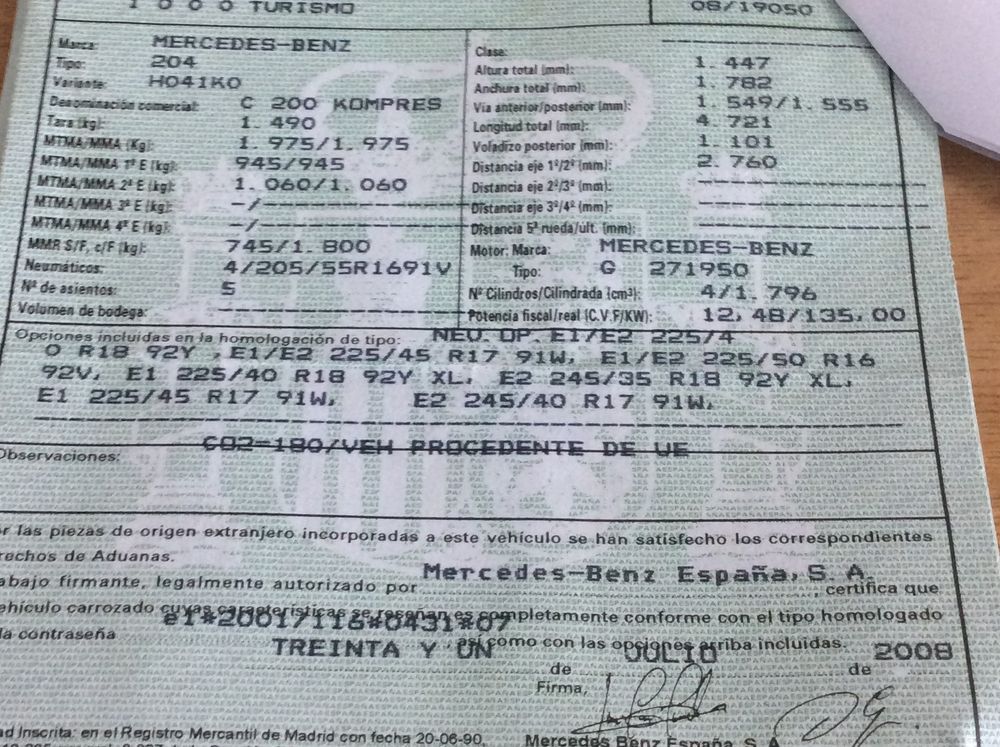 1 0 0 0 TURISMO
08/19050
Marca: MERCEDES-BENZ
Tipo: 204
Variante: H041K0
Denominación comercial: C 200 KOMPRES
Tara (kg): 1. 490
MTMA/MMA (Kg): 1. 975/1. 975
MTMA/MMA 1º E (kg): 945/945
MTMA/MMA 2º E (kg): 1. 060/1. 060
MTMA/MMA 3º E (kg): -/----------
MTMA/MMA 4º E (kg): -/----------
MMR S/F, c/F (kg): 745/1. 800
Neumáticos: 4/205/55R1691V
Nº de asientos: 5
Volumen de bodega: ----------
Clase: ----------
Altura total (mm): 1. 447
Anchura total (mm): 1. 782
Via anterior/posterior (mm): 1. 549/1. 555
Longitud total (mm): 4. 721
Voladizo posterior (mm): 1. 101
Distancia eje 1º/2º (mm): 2. 760
Distancia eje 2º/3º (mm): ----------
Distancia eje 3º/4º (mm): ----------
Distancia 5ª rueda/ult. (mm): ----------
Motor: Marca: MERCEDES-BENZ
Tipo: G 271950
Nº Cilindros/Cilindrada (cm³): 4/1. 796
Potencia fiscal/real (C.V.F/KW): 12, 48/135, 00
Opciones incluidas en la homologación de tipo: NEU. OP. E1/E2 225/4
0 R18 92Y , E1/E2 225/45 R17 91W, E1/E2 225/50 R16
92V, E1 225/40 R18 92Y XL, E2 245/35 R18 92Y XL,
E1 225/45 R17 91W, E2 245/40 R17 91W,
CO2-180/VEH PROCEDENTE DE UE
Observaciones:
r las piezas de origen extranjero incorporadas a este vehículo se han satisfecho los correspondientes
rechos de Aduanas.
abajo firmante, legalmente autorizado por Mercedes-Benz España, S. A. , certifica que
ehículo carrozado cuyas características se reseñan es completamente conforme con el tipo homologado
la contraseña e1*2001/116*0431*07 así como con las opciones arriba incluidas.
TREINTA Y UN de JULIO de 2008
Firma,
ad Inscrita: en el Registro Mercantil de Madrid con fecha 20-06-90,
Mercedes Benz España, S. A.